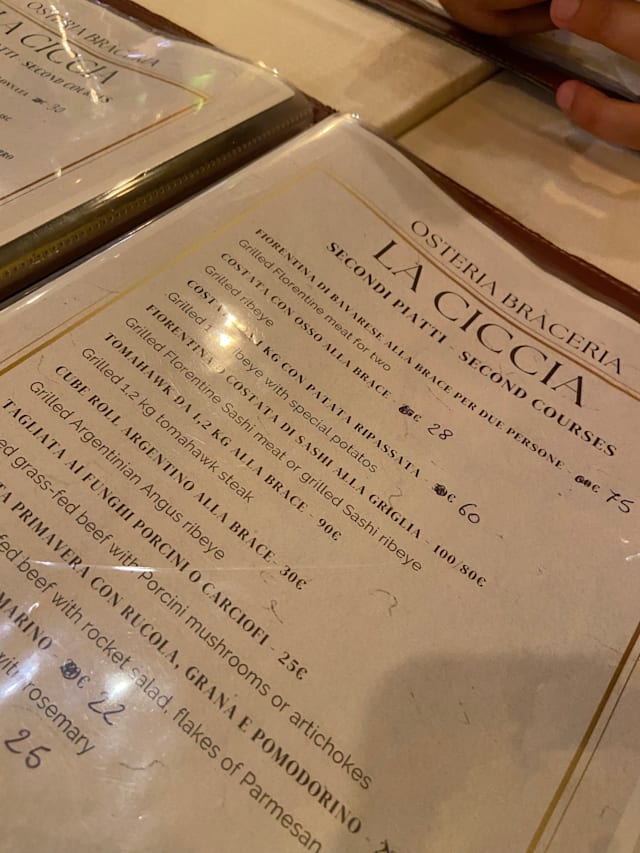 OSTERIA BRACERIA
LA CICCIA
SECOND COURSES
30
OSTERIA BRACERIA
LA CICCIA
SECONDI PIATTI - SECOND COURSES
FIORENTINA DI BAVARESE ALLA BRACE PER DUE PERSONE - 60€ 75
Grilled Florentine meat for two
COSTATA CON OSSO ALLA BRACE - € 28
Grilled ribeye
KG CON PATATA RIPASSATA - € 60
Grilled beye with special potatos
FIORENTINA O COSTATA DI SASHI ALLA GRIGLIA - 100/80€
Grilled Florentine Sashi meat or grilled Sashi ribeye
TOMAHAWK DA 1,2 KG ALLA BRACE - 90€
Grilled 1,2 kg tomahawk steak
CUBE ROLL ARGENTINO ALLA BRACE- 30€
Grilled Argentinian Angus ribeye
TAGLIATA AI FUNGHI PORCINI O CARCIOFI - 25€
ed grass-fed beef with Porcini mushrooms or artichokes
TA PRIMAVERA CON RUCOLA, GRANA E POMODORINO -
fed beef with rocket salad, flakes of Parmesan
MARINO € 22
with rosemary
25